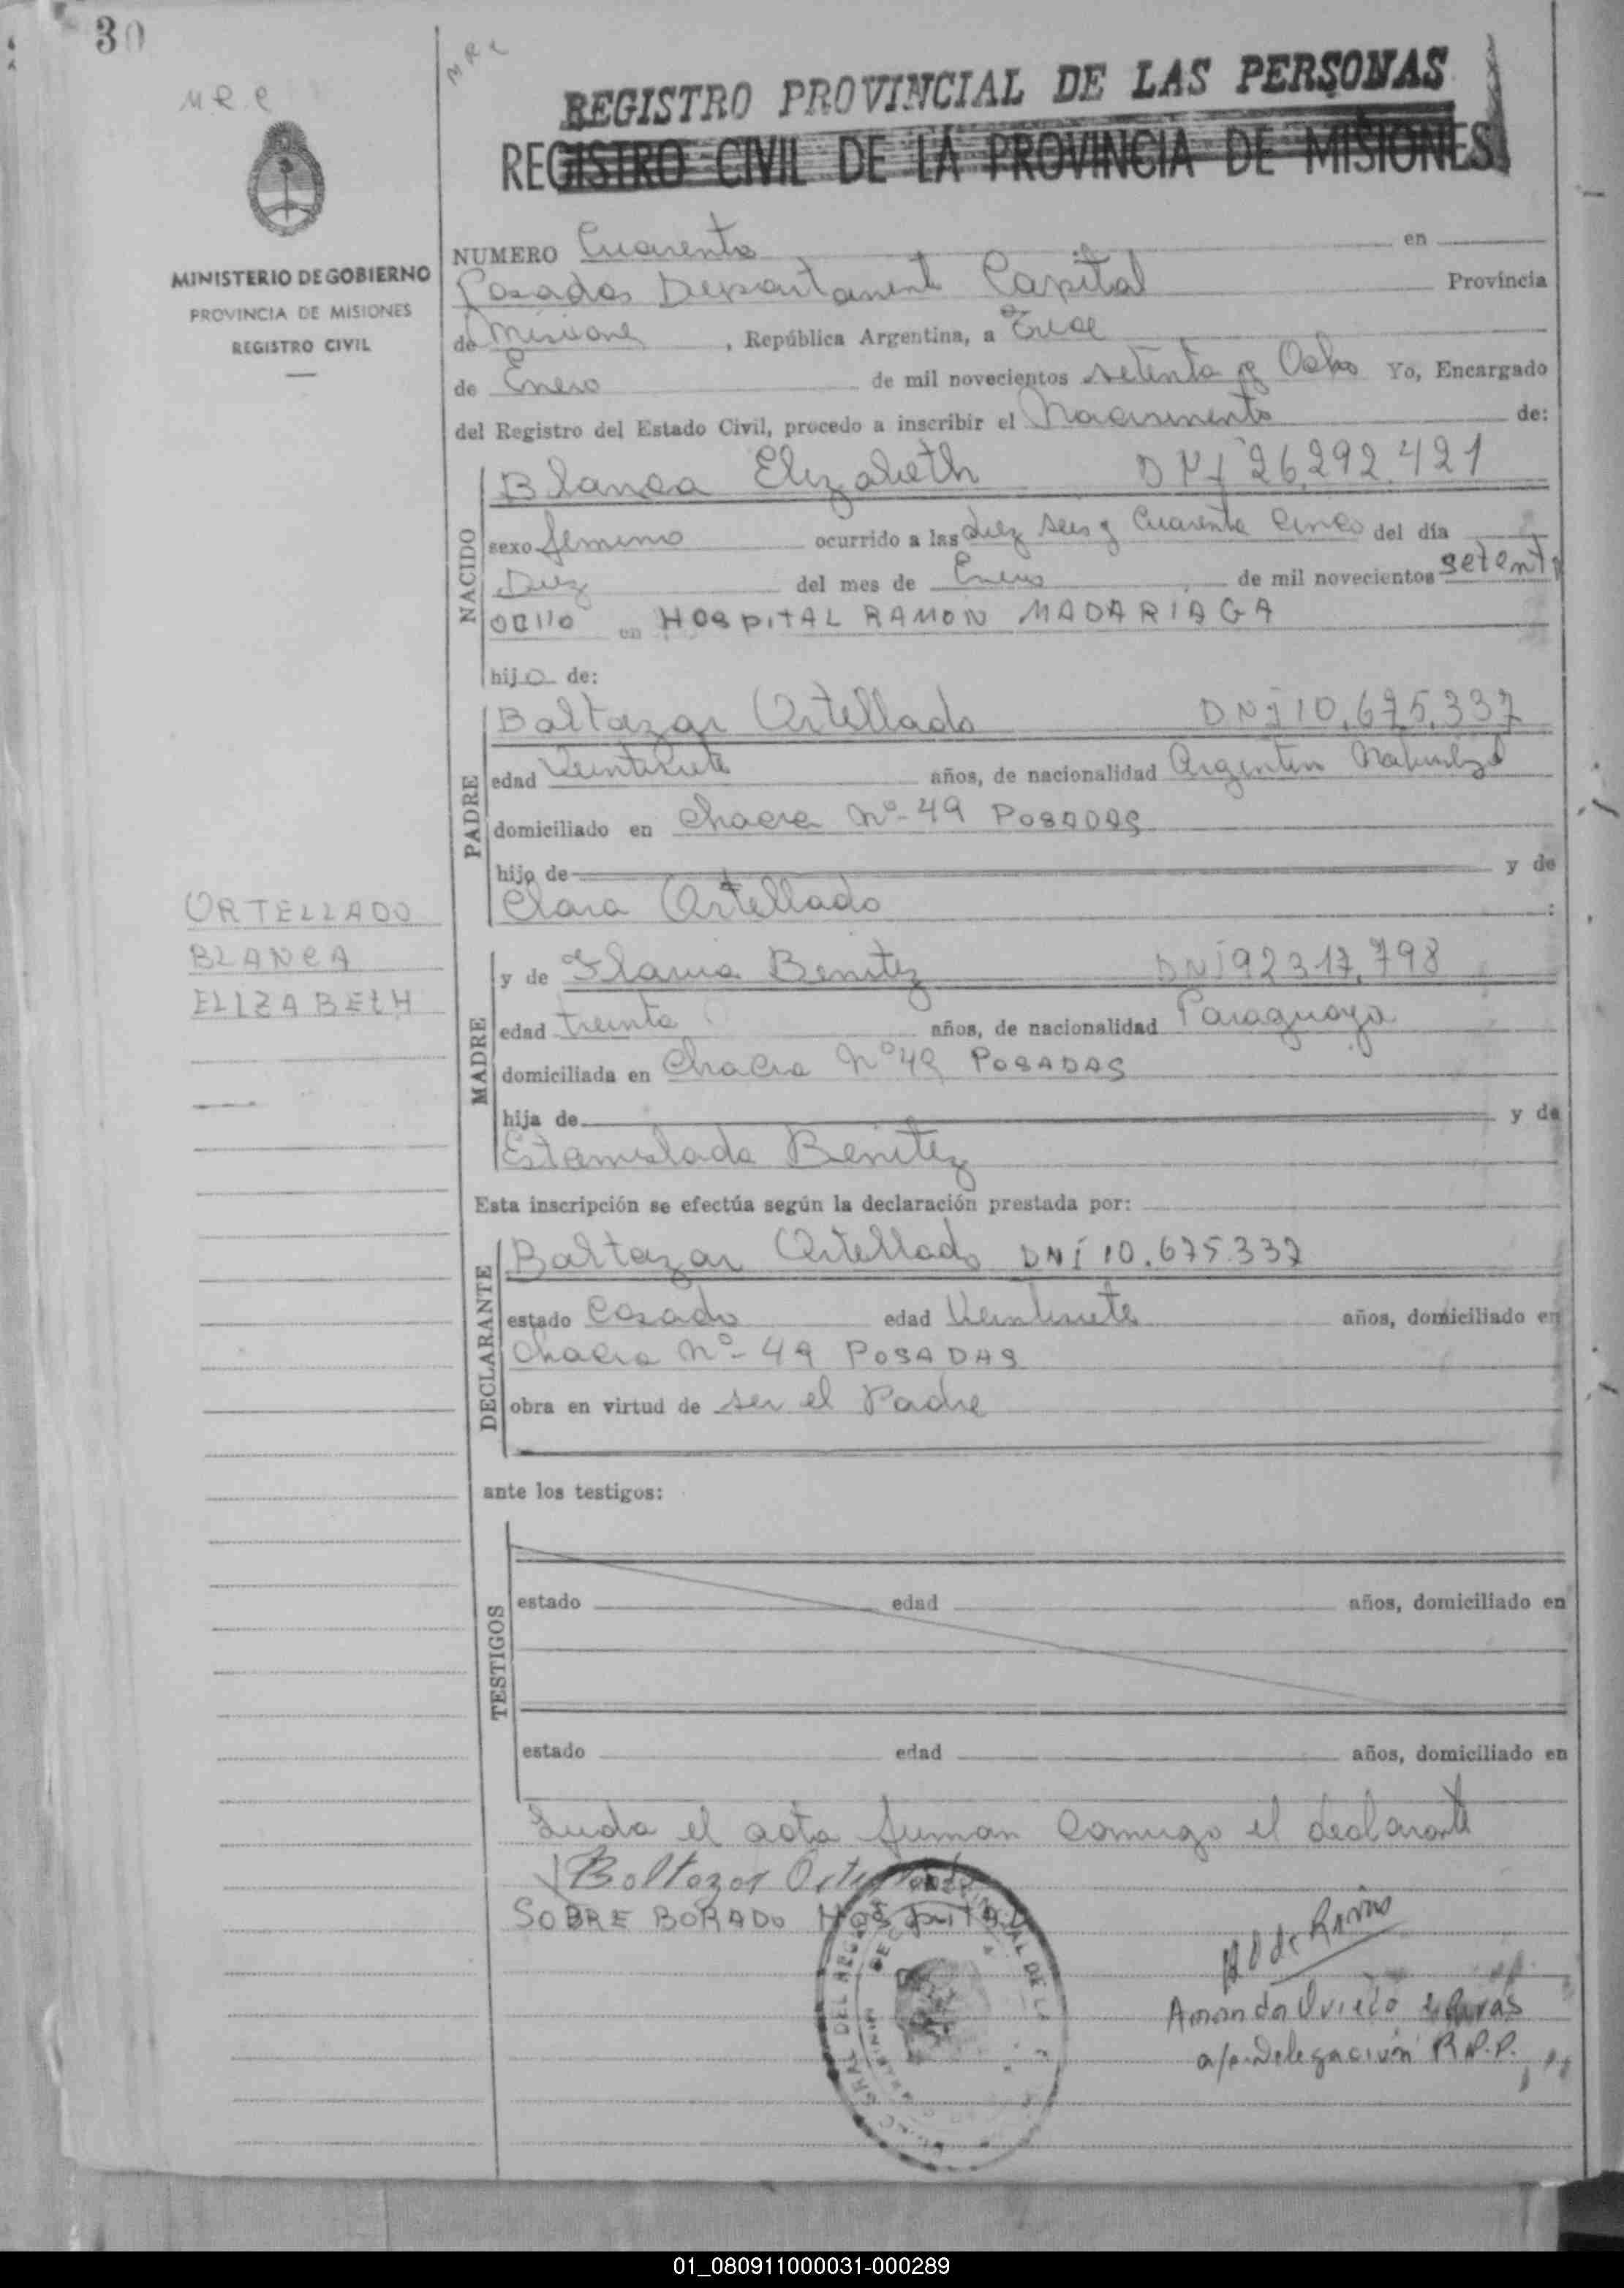 30
MRC
MRC
REGISTRO PROVINCIAL DE LAS PERSONAS
REGISTRO CIVIL DE LA PROVINCIA DE MISIONES
MINISTERIO DE GOBIERNO
PROVINCIA DE MISIONES
REGISTRO CIVIL
NUMERO Cuarenta en
Posadas Departament Capital Provincia
de Misiones, República Argentina, a Trece
de Enero de mil novecientos setenta y Ocho Yo, Encargado
del Registro del Estado Civil, procedo a inscribir el Nacimiento de:
NACIDO
Blanca Elizabeth DNI 26.292.421
sexo femenino ocurrido a las diez seis y Cuarenta Cinco del día
Diez del mes de Enero de mil novecientos setenta
ocho en HOSPITAL RAMON MADARIAGA
hija de:
PADRE
Baltazar Ortellado DNI 10.675.337
edad Veintisiete años, de nacionalidad Argentino
domiciliado en Chacra Nº 49 POSADAS
hijo de y de
Clara Ortellado
ORTELLADO
BLANCA
ELIZABETH
MADRE
y de Benitez DNI 92317.798
edad treinta años, de nacionalidad Paraguaya
domiciliada en Chacra Nº 49 POSADAS
hija de y de
Estanislada Benitez
Esta inscripción se efectúa según la declaración prestada por:
DECLARANTE
Baltazar Ortellado DNI 10.675.337
estado Casado edad Veintisiete años, domiciliado en
Chacra Nº 49 POSADAS
obra en virtud de ser el Padre
ante los testigos:
TESTIGOS
estado edad años, domiciliado en
estado edad años, domiciliado en
Leida el acta firman Conmigo el declarante
Baltazar
SOBRE BORADO Hospital
AO de Rivas
Amanda Oviedo de Rivas
Delegación R.P.P.
01_080911000031-000289